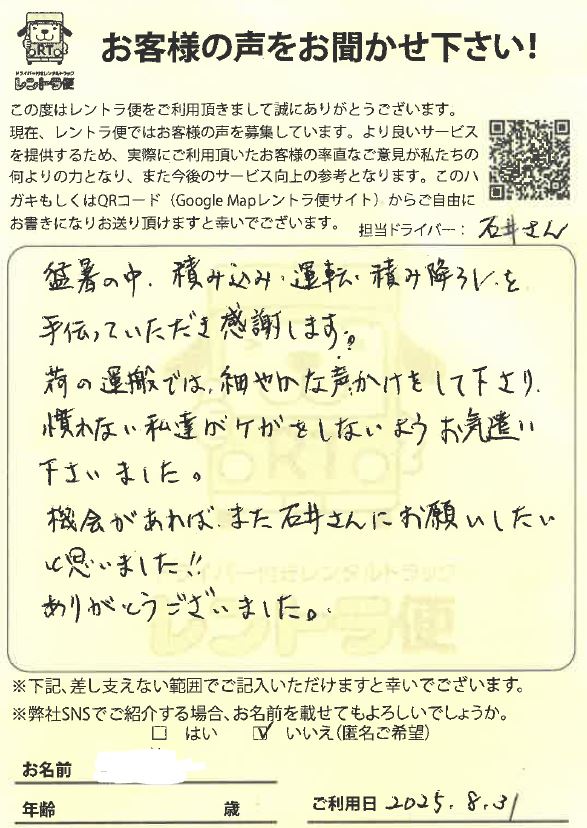 RT
ドライバー付きレンタルトラック
レントラ便
お客様の声をお聞かせ下さい!
この度はレントラ便をご利用頂きまして誠にありがとうございます。
現在、レントラ便ではお客様の声を募集しています。より良いサービス
を提供するため、実際にご利用頂いたお客様の率直なご意見が私たちの
何よりの力となり、また今後のサービス向上の参考となります。このハ
ガキもしくはQRコード（Google Mapレントラ便サイト）からご自由に
お書きになりお送り頂けますと幸いでございます。
担当ドライバー： 石井さん
猛暑の中、積み込み・運転・積み降ろしを
手伝っていただき感謝します。
荷の運搬では、細やかな声かけをして下さり、
慣れない私達がケガをしないようお気遣い
下さいました。
機会があれば、また石井さんにお願いしたい
と思いました!!
ありがとうございました。
RT
ドライバー付きレンタルトラック
レントラ便
※下記、差し支えない範囲でご記入いただけますと幸いでございます。
※弊社SNSでご紹介する場合、お名前を載せてもよろしいでしょうか。
□ はい ☑ いいえ(匿名ご希望)
お名前
年齢 歳 ご利用日 2025.8.31